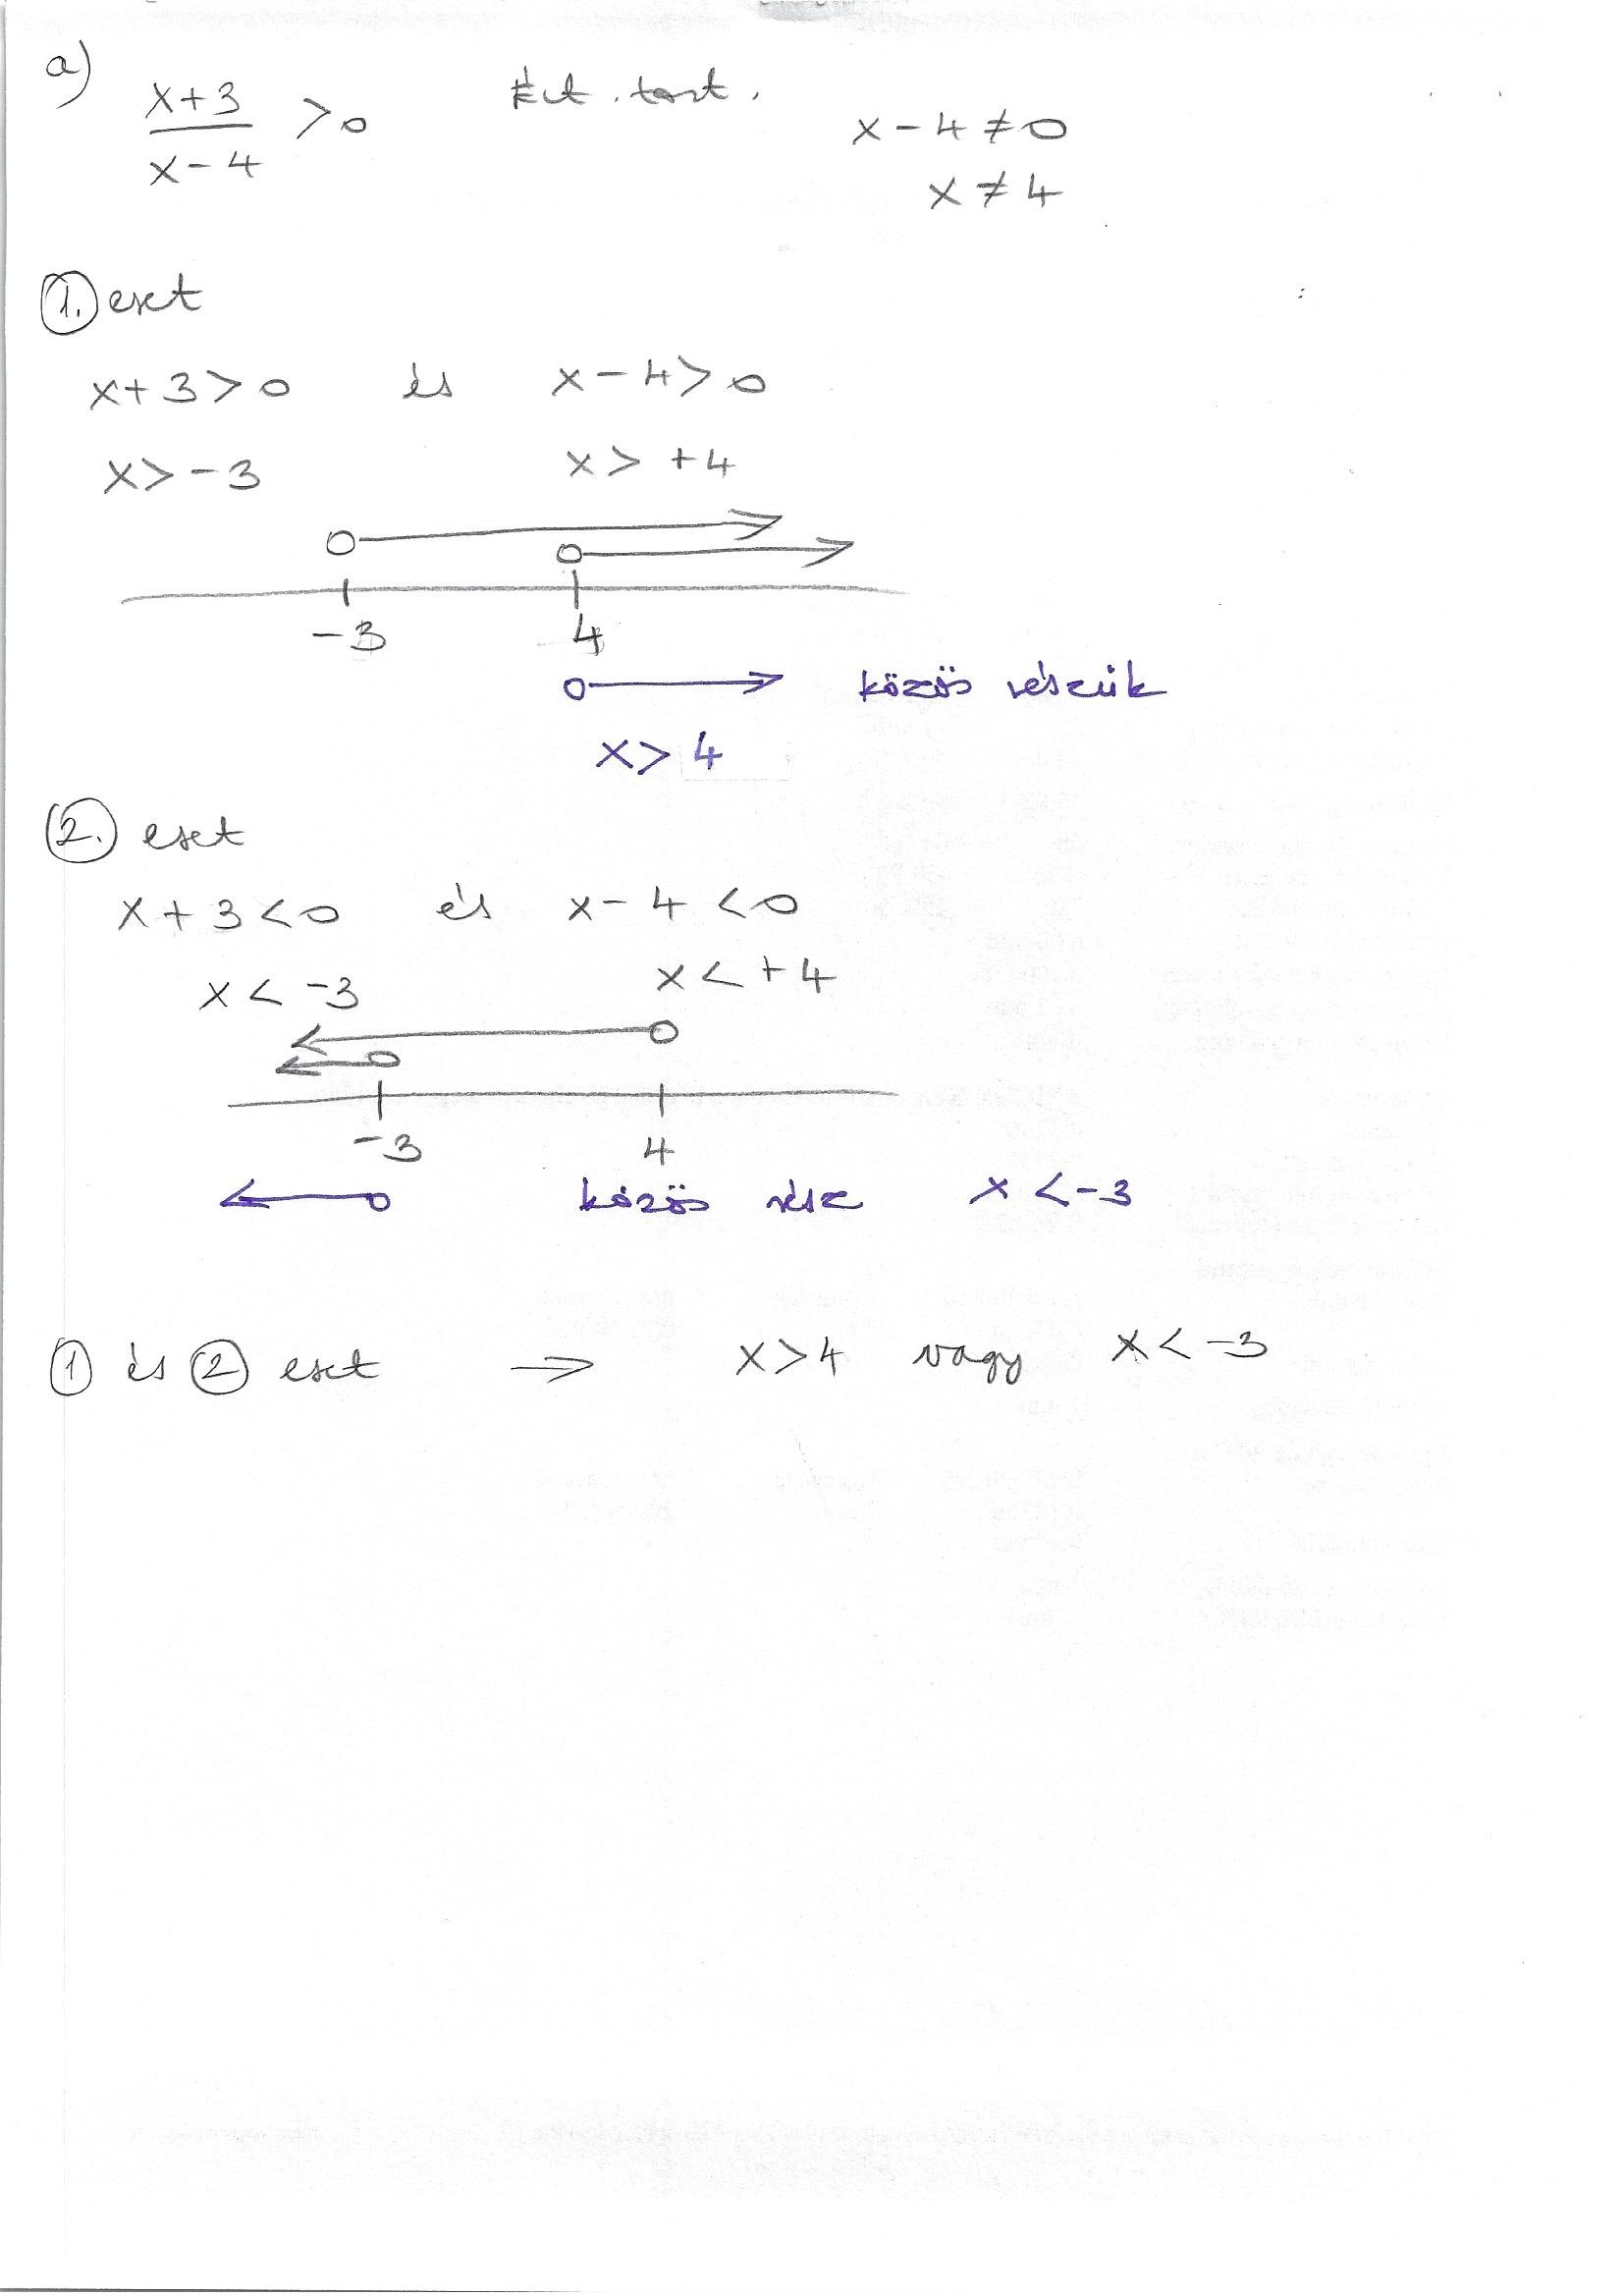 a)
x+3
—— >0 Ért. tart. x-4≠0
x-4
x≠4
1. eset
x+3>0 és x-4>0
x>-3 x>+4
-3 4
közös részük
x>4
2. eset
x+3<0 és x-4<0
x<-3 x<+4
-3 4
közös rész x<-3
1 és 2 eset → x>4 vagy x<-3